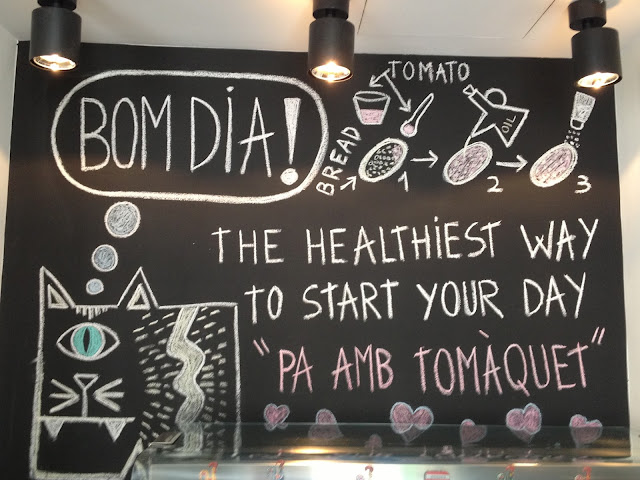 BOM DIA!
TOMATO
BREAD
OIL
1 2 3
THE HEALTHIEST WAY
TO START YOUR DAY
"PA AMB TOMÀQUET"